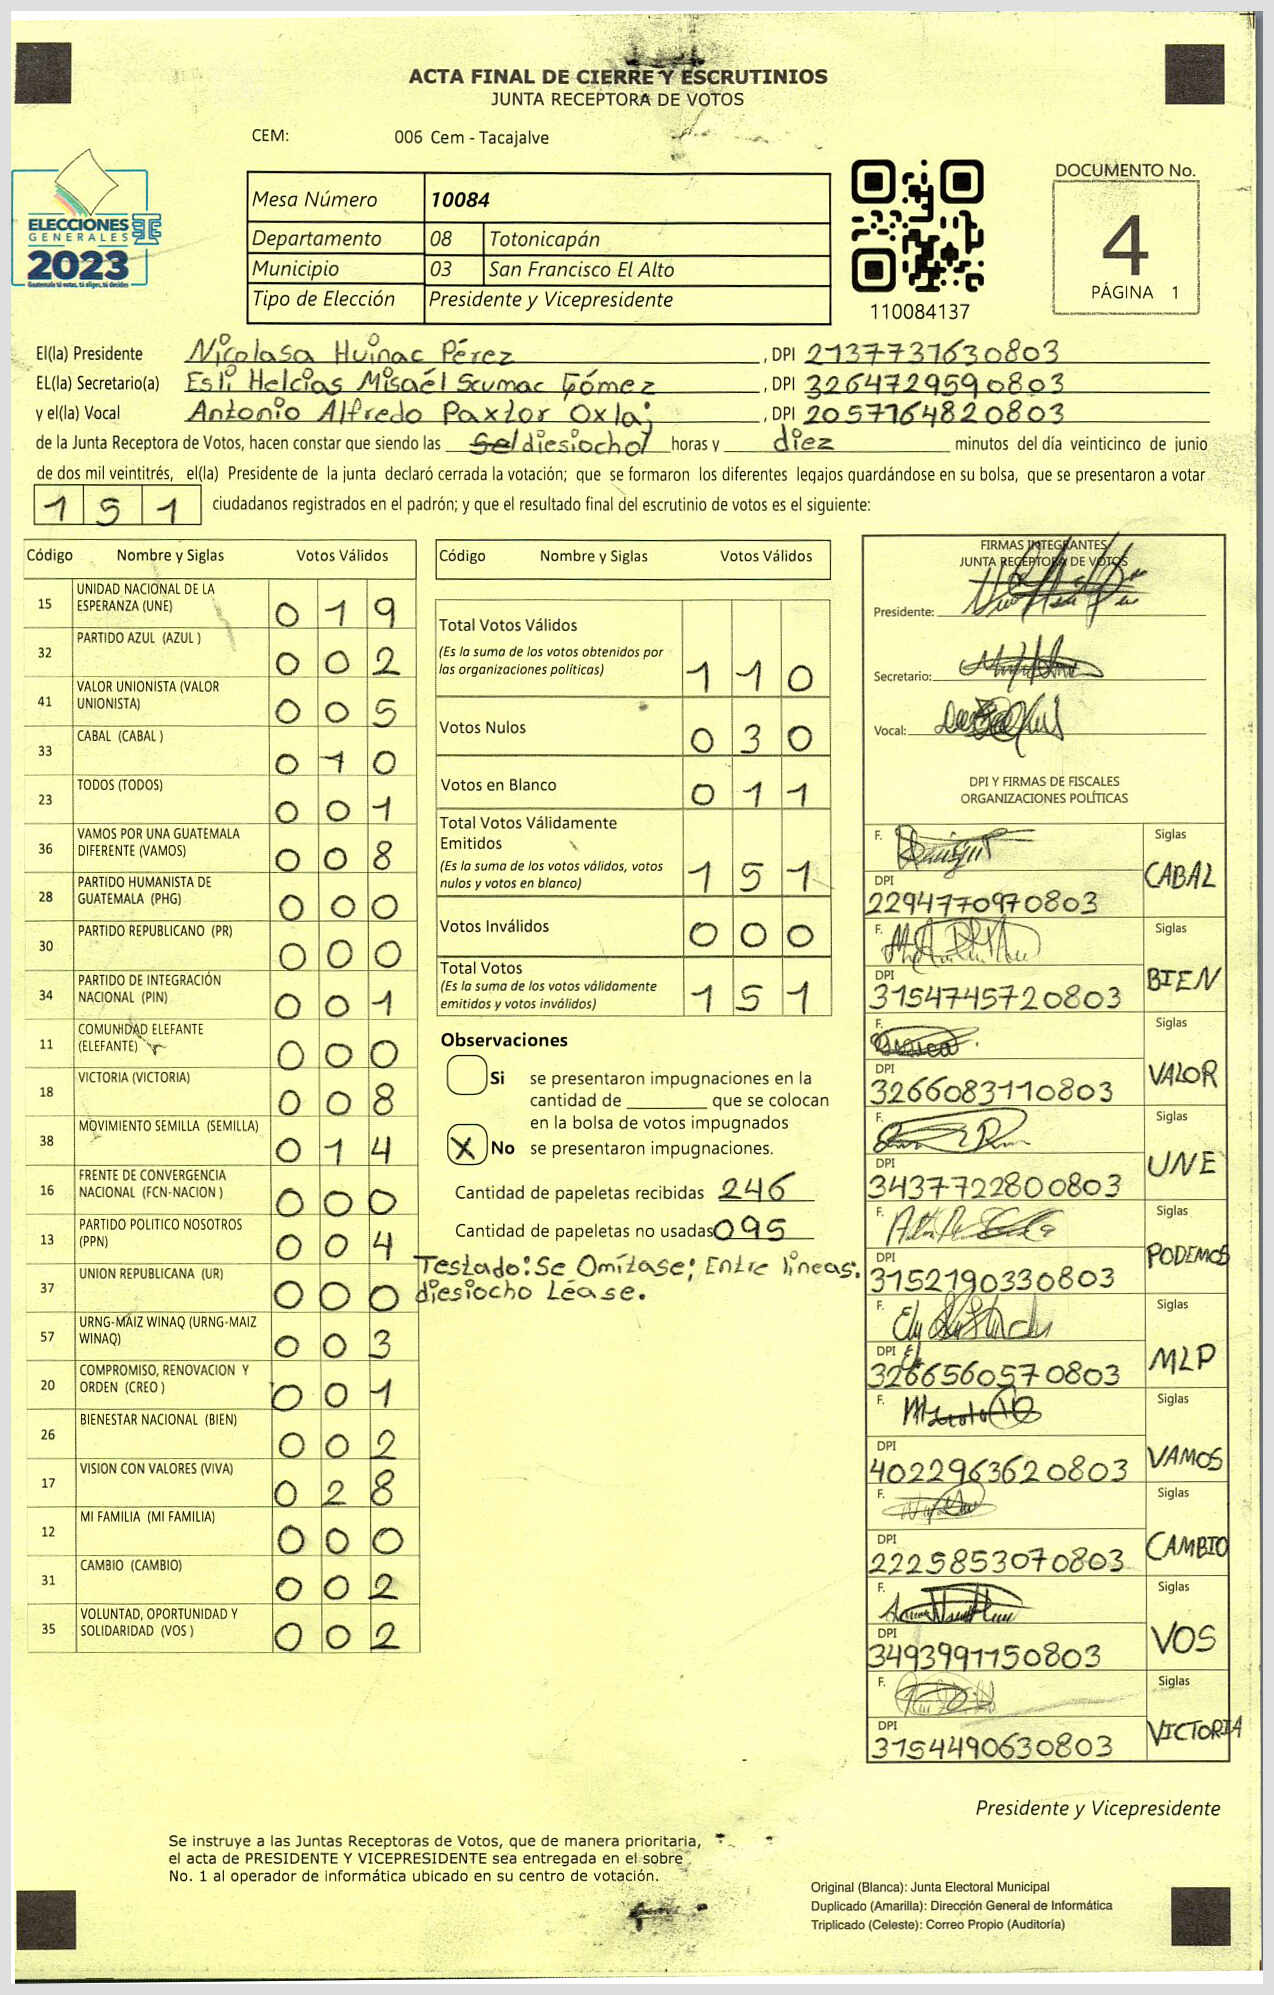 ACTA FINAL DE CIERRE Y ESCRUTINIOS
JUNTA RECEPTORA DE VOTOS
CEM: 006 Cem - Tacajalve
ELECCIONES
GENERALES
2023
Guatemala tú votas, tú eliges, tú decides
Mesa Número 10084
Departamento 08 Totonicapán
Municipio 03 San Francisco El Alto
Tipo de Elección Presidente y Vicepresidente
110084137
DOCUMENTO No.
4
PÁGINA 1
El(la) Presidente Nicolasa Huinac Pérez, DPI 2137731630803
EL(la) Secretario(a) Esli Helcias Misaél Scumac Gómez, DPI 3264729590803
y el(la) Vocal Antonio Alfredo Paxtor Oxlaj, DPI 2057164820803
de la Junta Receptora de Votos, hacen constar que siendo las diesiocho horas y diez minutos del día veinticinco de junio
de dos mil veintitrés, el(la) Presidente de la junta declaró cerrada la votación; que se formaron los diferentes legajos guardándose en su bolsa, que se presentaron a votar
151 ciudadanos registrados en el padrón; y que el resultado final del escrutinio de votos es el siguiente:
Código Nombre y Siglas Votos Válidos
15 UNIDAD NACIONAL DE LA ESPERANZA (UNE) 019
32 PARTIDO AZUL (AZUL ) 002
41 VALOR UNIONISTA (VALOR UNIONISTA) 005
33 CABAL (CABAL ) 010
23 TODOS (TODOS) 001
36 VAMOS POR UNA GUATEMALA DIFERENTE (VAMOS) 008
28 PARTIDO HUMANISTA DE GUATEMALA (PHG) 000
30 PARTIDO REPUBLICANO (PR) 000
34 PARTIDO DE INTEGRACIÓN NACIONAL (PIN) 001
11 COMUNIDAD ELEFANTE (ELEFANTE) 000
18 VICTORIA (VICTORIA) 008
38 MOVIMIENTO SEMILLA (SEMILLA) 014
16 FRENTE DE CONVERGENCIA NACIONAL (FCN-NACION ) 000
13 PARTIDO POLITICO NOSOTROS (PPN) 004
37 UNION REPUBLICANA (UR) 000
57 URNG-MAIZ WINAQ (URNG-MAIZ WINAQ) 003
20 COMPROMISO, RENOVACION Y ORDEN (CREO ) 001
26 BIENESTAR NACIONAL (BIEN) 002
17 VISION CON VALORES (VIVA) 028
12 MI FAMILIA (MI FAMILIA) 000
31 CAMBIO (CAMBIO) 002
35 VOLUNTAD, OPORTUNIDAD Y SOLIDARIDAD (VOS ) 002
Código Nombre y Siglas Votos Válidos
Total Votos Válidos
(Es la suma de los votos obtenidos por
las organizaciones políticas) 110
Votos Nulos 030
Votos en Blanco 011
Total Votos Válidamente
Emitidos
(Es la suma de los votos válidos, votos
nulos y votos en blanco) 151
Votos Inválidos 000
Total Votos
(Es la suma de los votos válidamente
emitidos y votos inválidos) 151
Observaciones
Si se presentaron impugnaciones en la
cantidad de ________ que se colocan
en la bolsa de votos impugnados
X No se presentaron impugnaciones.
Cantidad de papeletas recibidas 246
Cantidad de papeletas no usadas 095
Testado: Se Omítase; Entre líneas:
diesiocho Léase.
FIRMAS INTEGRANTES
JUNTA RECEPTORA DE VOTOS
Presidente:
Secretario:
Vocal:
DPI Y FIRMAS DE FISCALES
ORGANIZACIONES POLÍTICAS
F. Siglas CABAL
DPI 2294770970803
F. Siglas BIEN
DPI 3154745720803
F. Siglas VALOR
DPI 3266083110803
F. Siglas UNE
DPI 3437722800803
F. Siglas PODEMOS
DPI 3152190330803
F. Siglas MLP
DPI 3266560570803
F. Siglas VAMOS
DPI 4022963620803
F. Siglas CAMBIO
DPI 2225853070803
F. Siglas VOS
DPI 3493991150803
F. Siglas VICTORIA
DPI 3154490630803
Presidente y Vicepresidente
Se instruye a las Juntas Receptoras de Votos, que de manera prioritaria,
el acta de PRESIDENTE Y VICEPRESIDENTE sea entregada en el sobre
No. 1 al operador de informática ubicado en su centro de votación.
Original (Blanca): Junta Electoral Municipal
Duplicado (Amarilla): Dirección General de Informática
Triplicado (Celeste): Correo Propio (Auditoría)